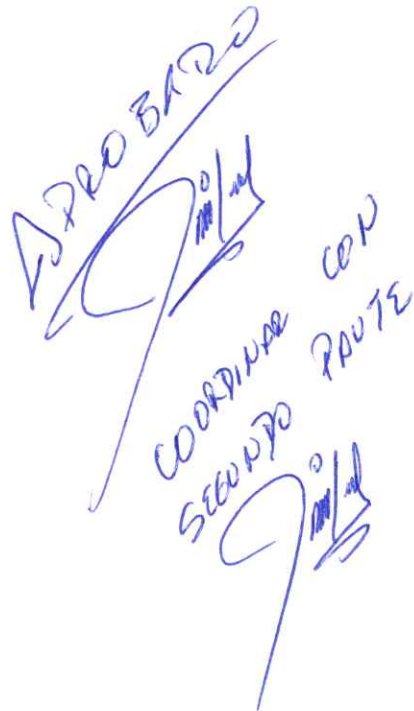 APROBADO
COORDINAR CON
SEGUNDO PAUTE